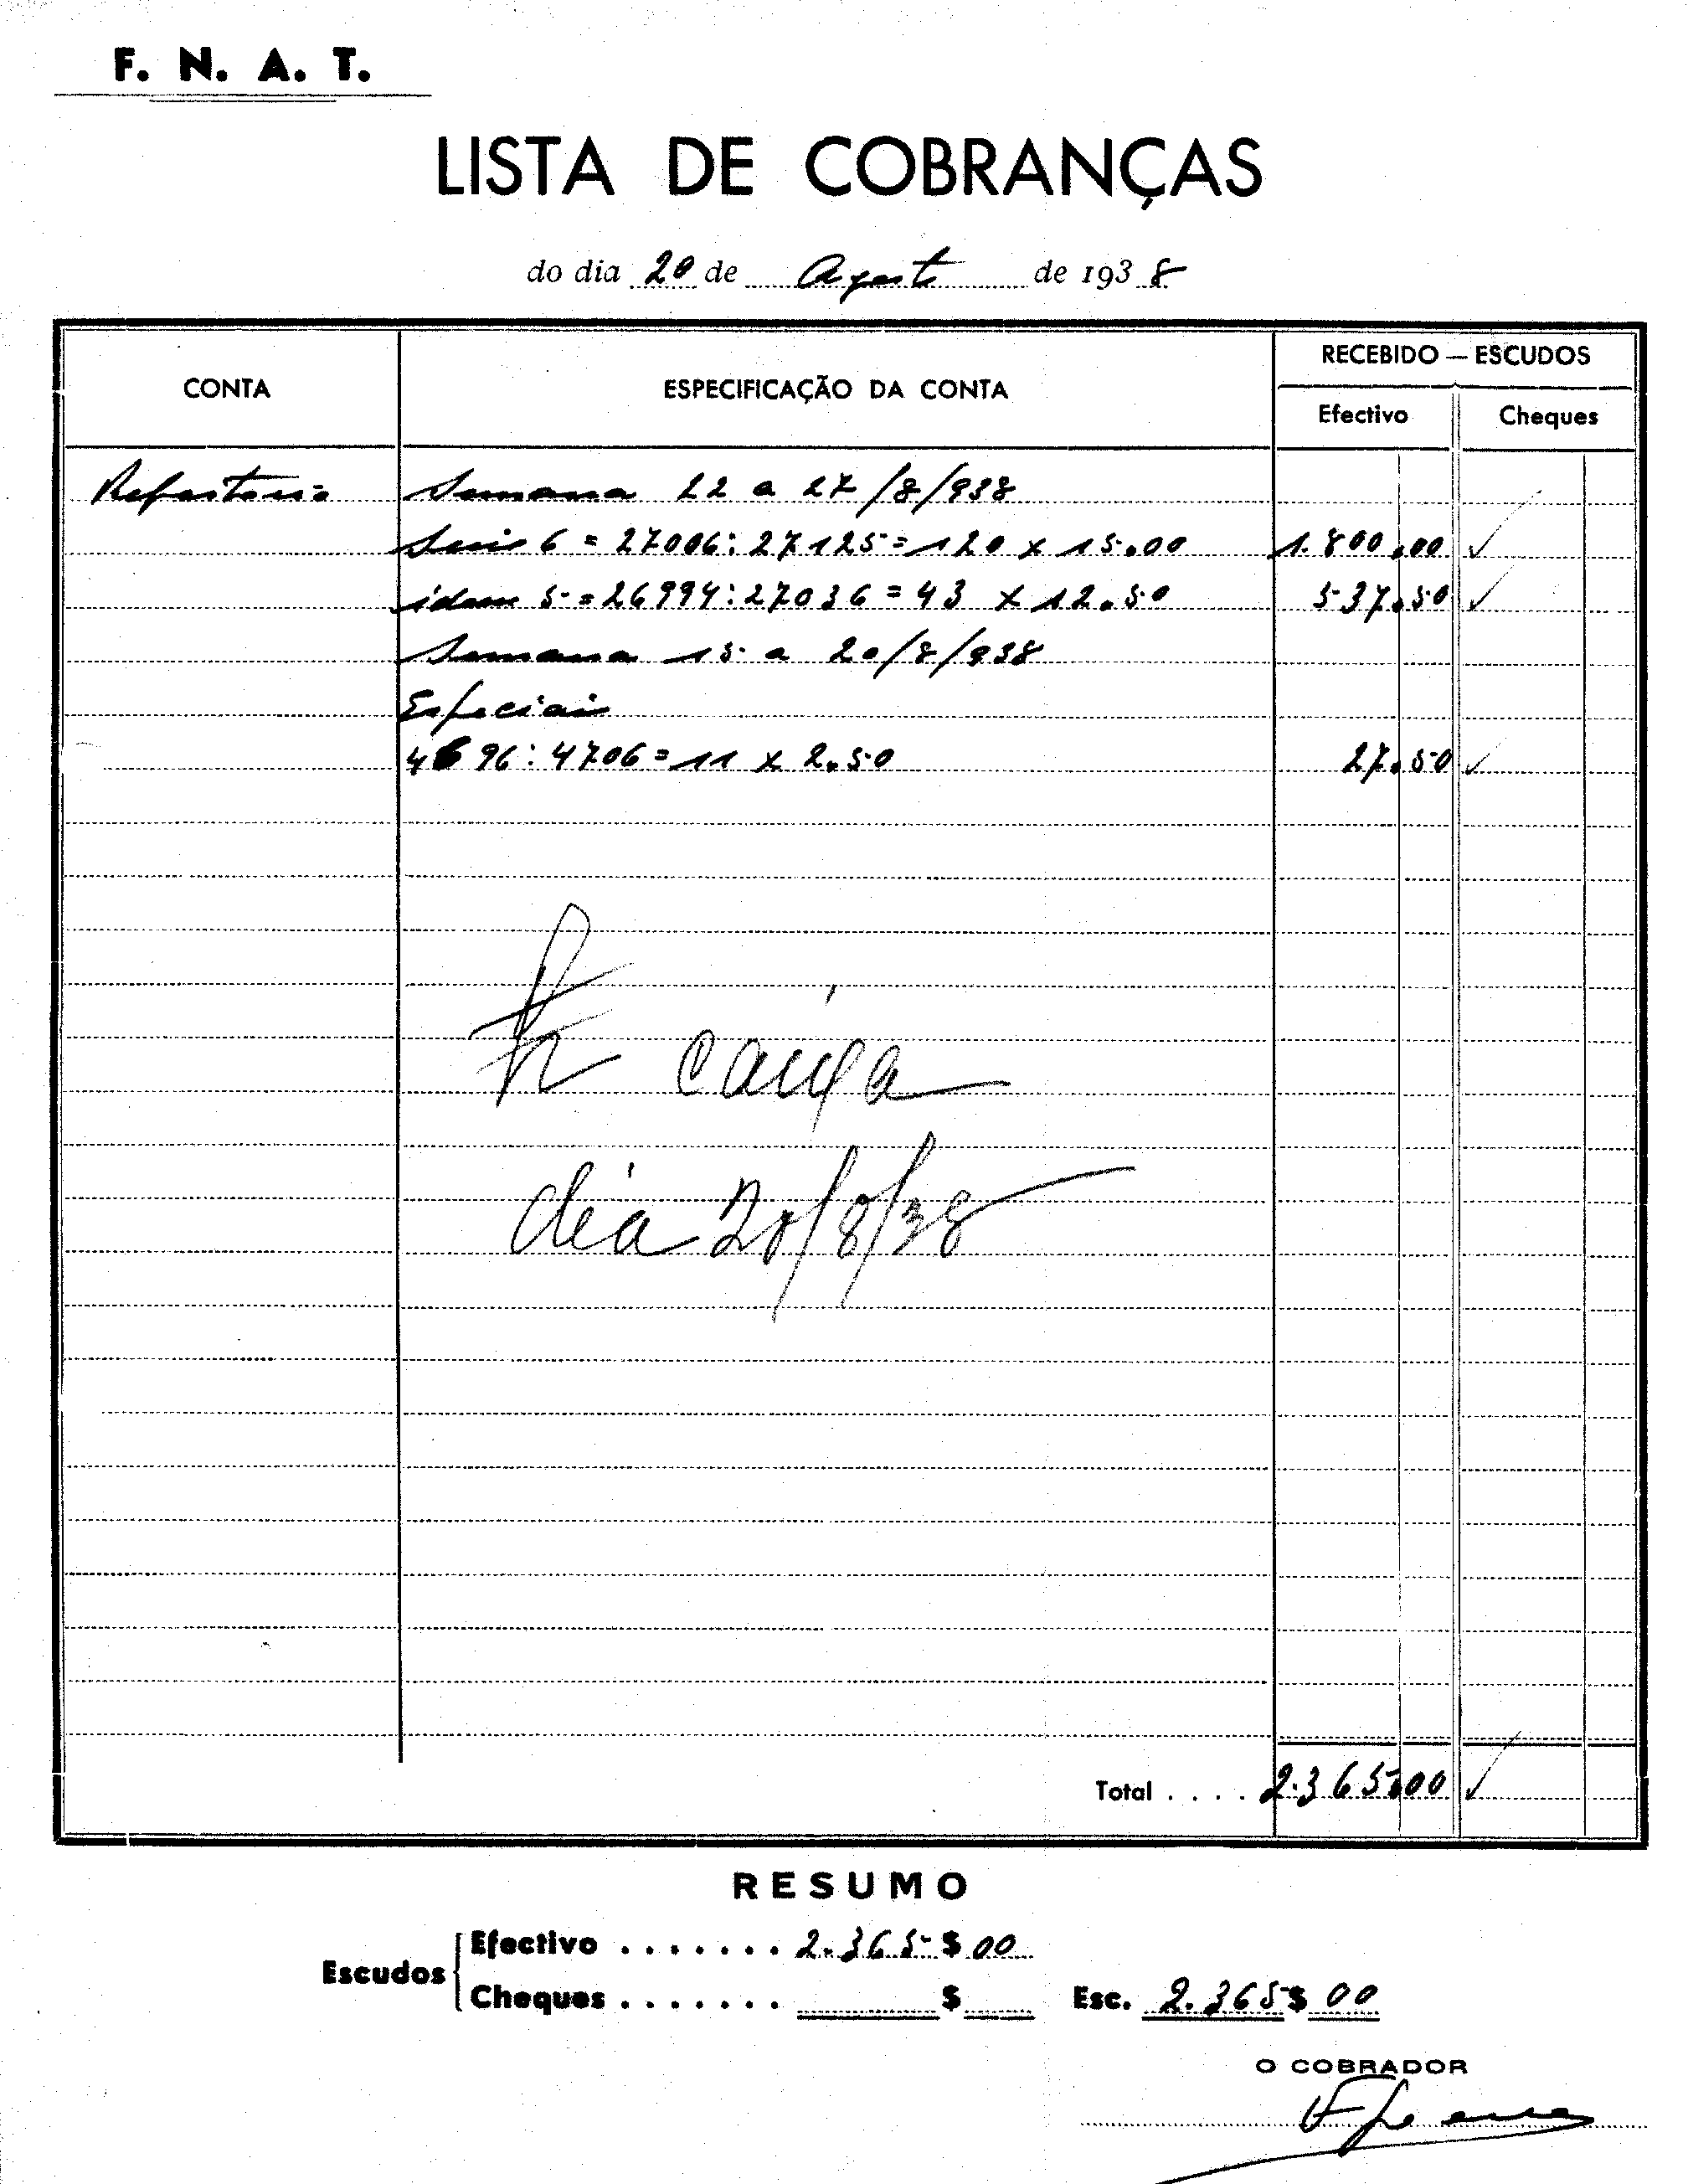 F. N. A. T.
LISTA DE COBRANÇAS
do dia 20 de Agosto de 1938
CONTA ESPECIFICAÇÃO DA CONTA RECEBIDO — ESCUDOS
Efectivo Cheques
Refeitorio Semana 22 a 27/8/938
Serie 6 = 27006:27125 = 120 x 15.00 1.800.00
idem 5 = 26994:27036 = 43 x 12.50 537.50
Semana 15 a 20/8/938
Especiais
4696:4706 = 11 x 2.50 27.50
caixa
dia 20/8/38
Total . . . . 2.365.00
RESUMO
Escudos
Efectivo . . . . . . . 2.365$00
Cheques . . . . . . . $ Esc. 2.365$00
O COBRADOR